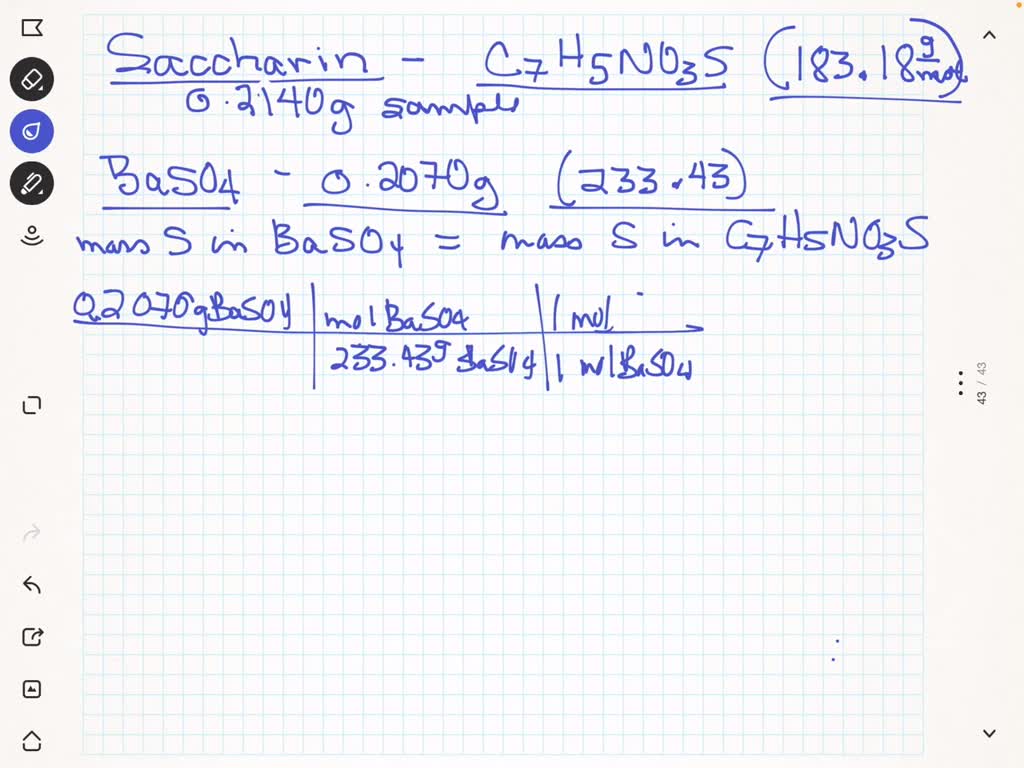 Saccharin - C7H5NO3S (183.18 g/mol)
0.2140g sample
BaSO4 - 0.2070g (233.43)
mass S in BaSO4 = mass S in C7H5NO3S
0.2070gBaSO4 | mol BaSO4 | 1 mol
233.43g BaSO4 | 1 mol BaSO4
43 / 43